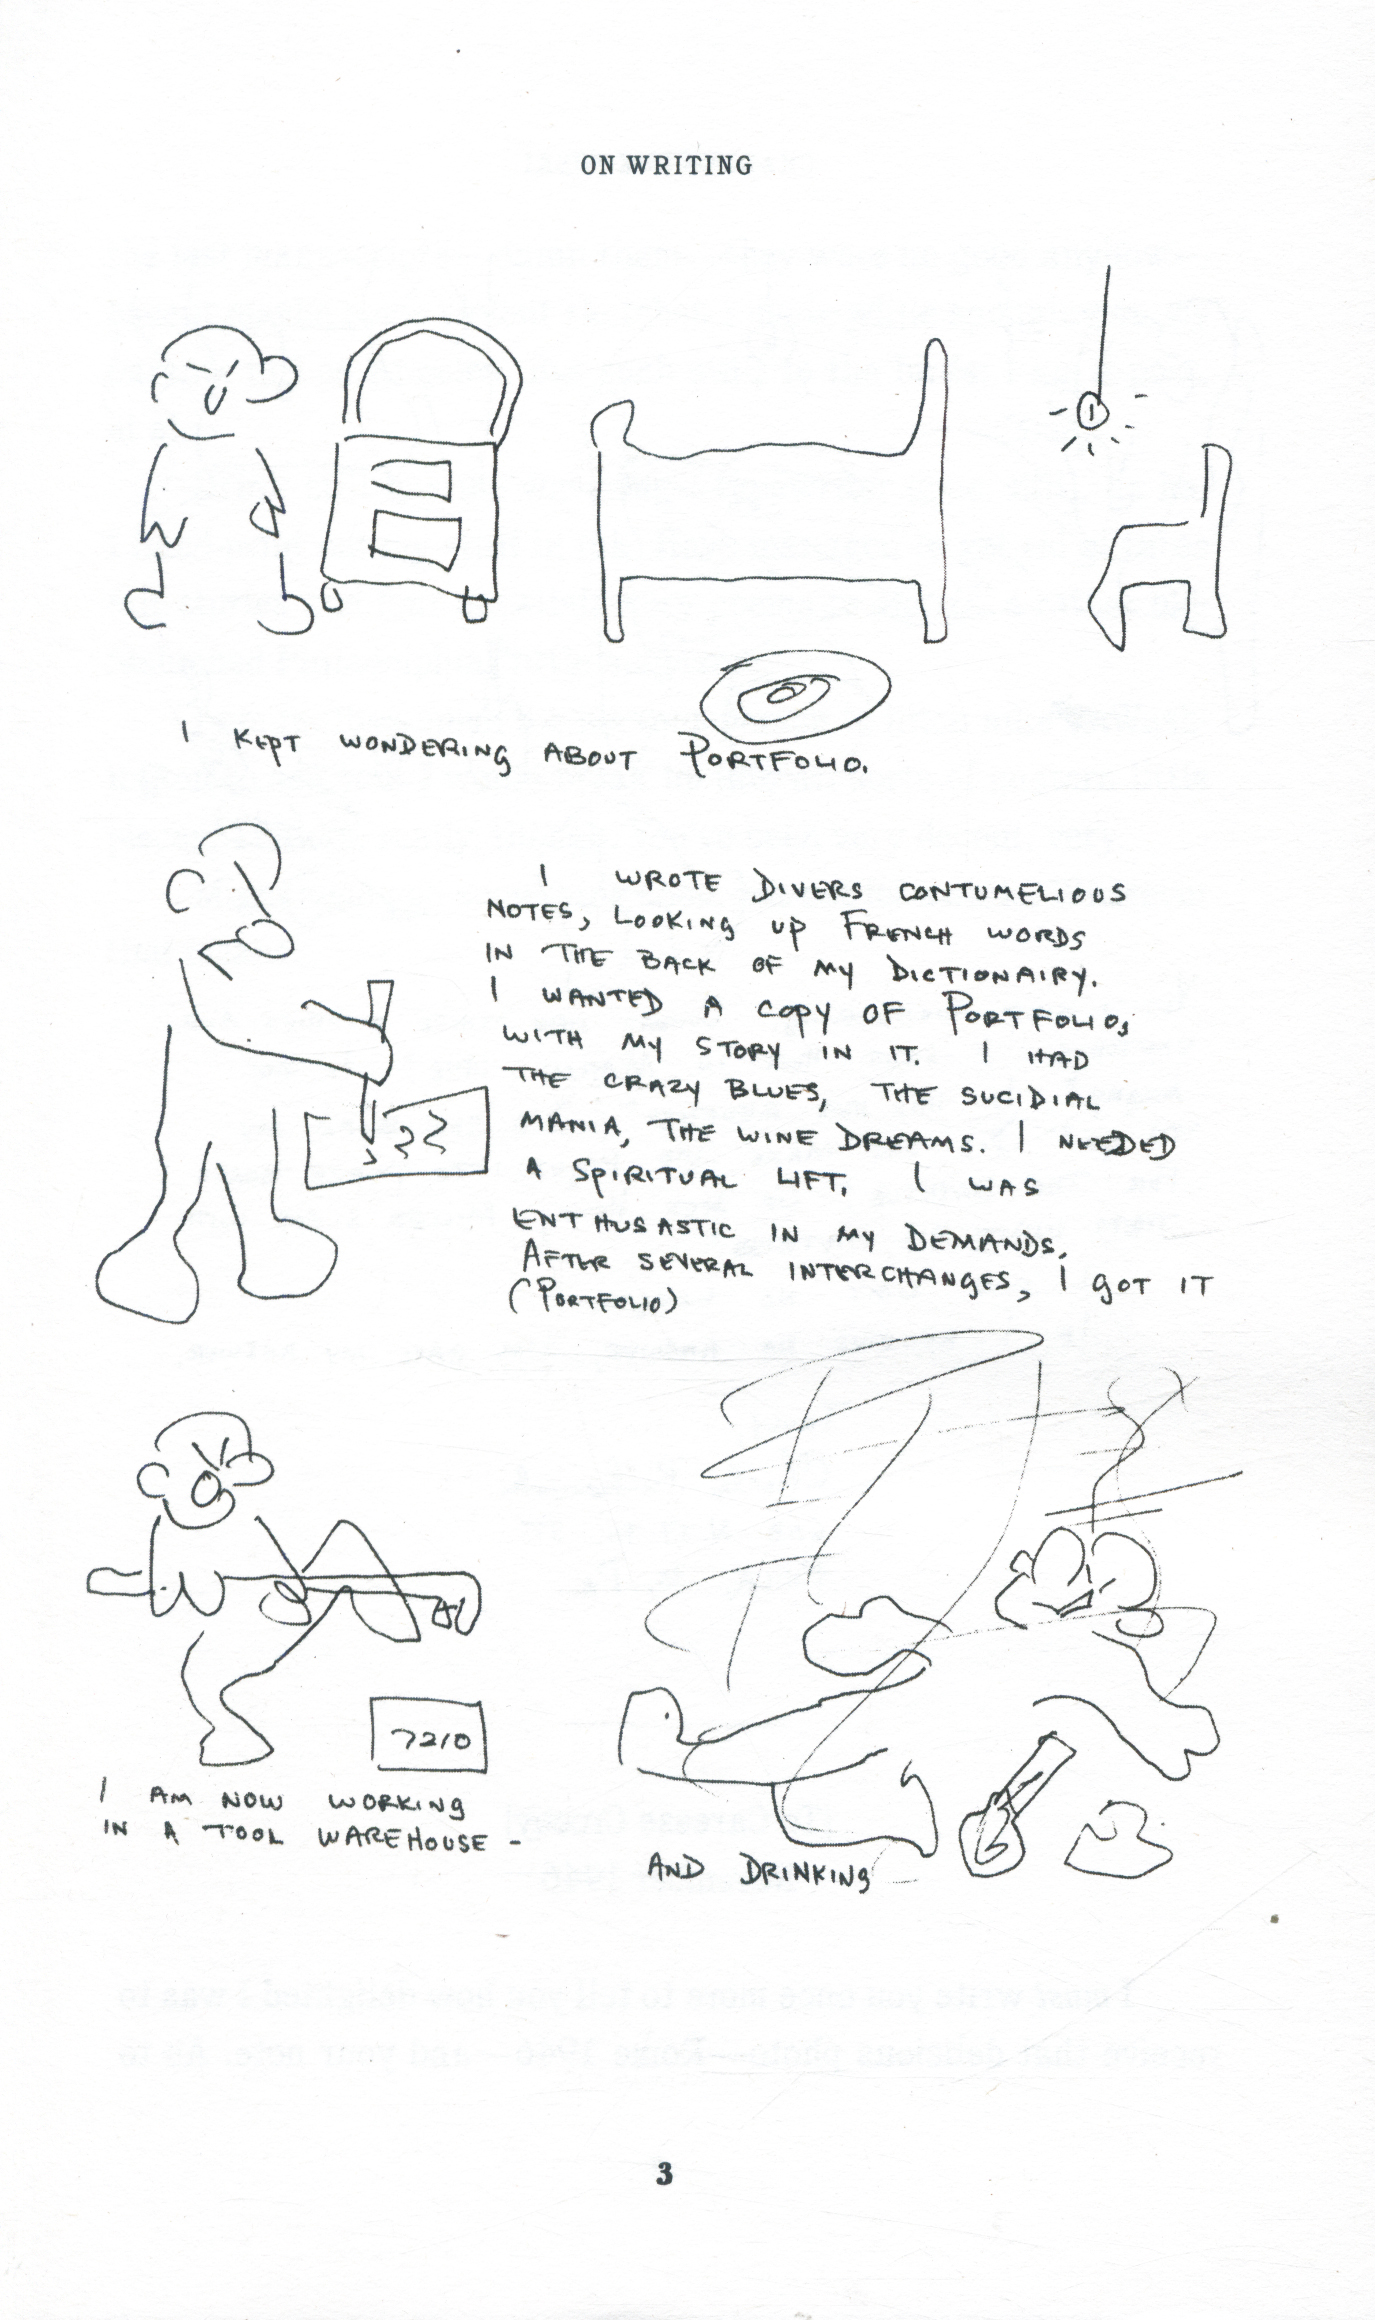 ON WRITING
I KEPT WONDERING ABOUT PORTFOLIO.
I WROTE DIVERS CONTUMELIOUS
NOTES, LOOKING UP FRENCH WORDS
IN THE BACK OF MY DICTIONAIRY.
I WANTED A COPY OF PORTFOLIO,
WITH MY STORY IN IT. I HAD
THE CRAZY BLUES, THE SUCIDIAL
MANIA, THE WINE DREAMS. I NEEDED
A SPIRITUAL LIFT. I WAS
ENTHUSASTIC IN MY DEMANDS.
AFTER SEVERAL INTERCHANGES, I GOT IT
(PORTFOLIO)
7210
I AM NOW WORKING
IN A TOOL WAREHOUSE -
AND DRINKING
3